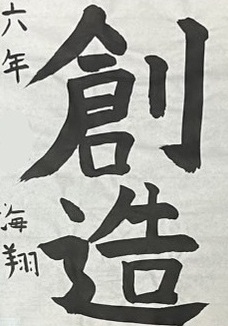 創造
六年
海翔